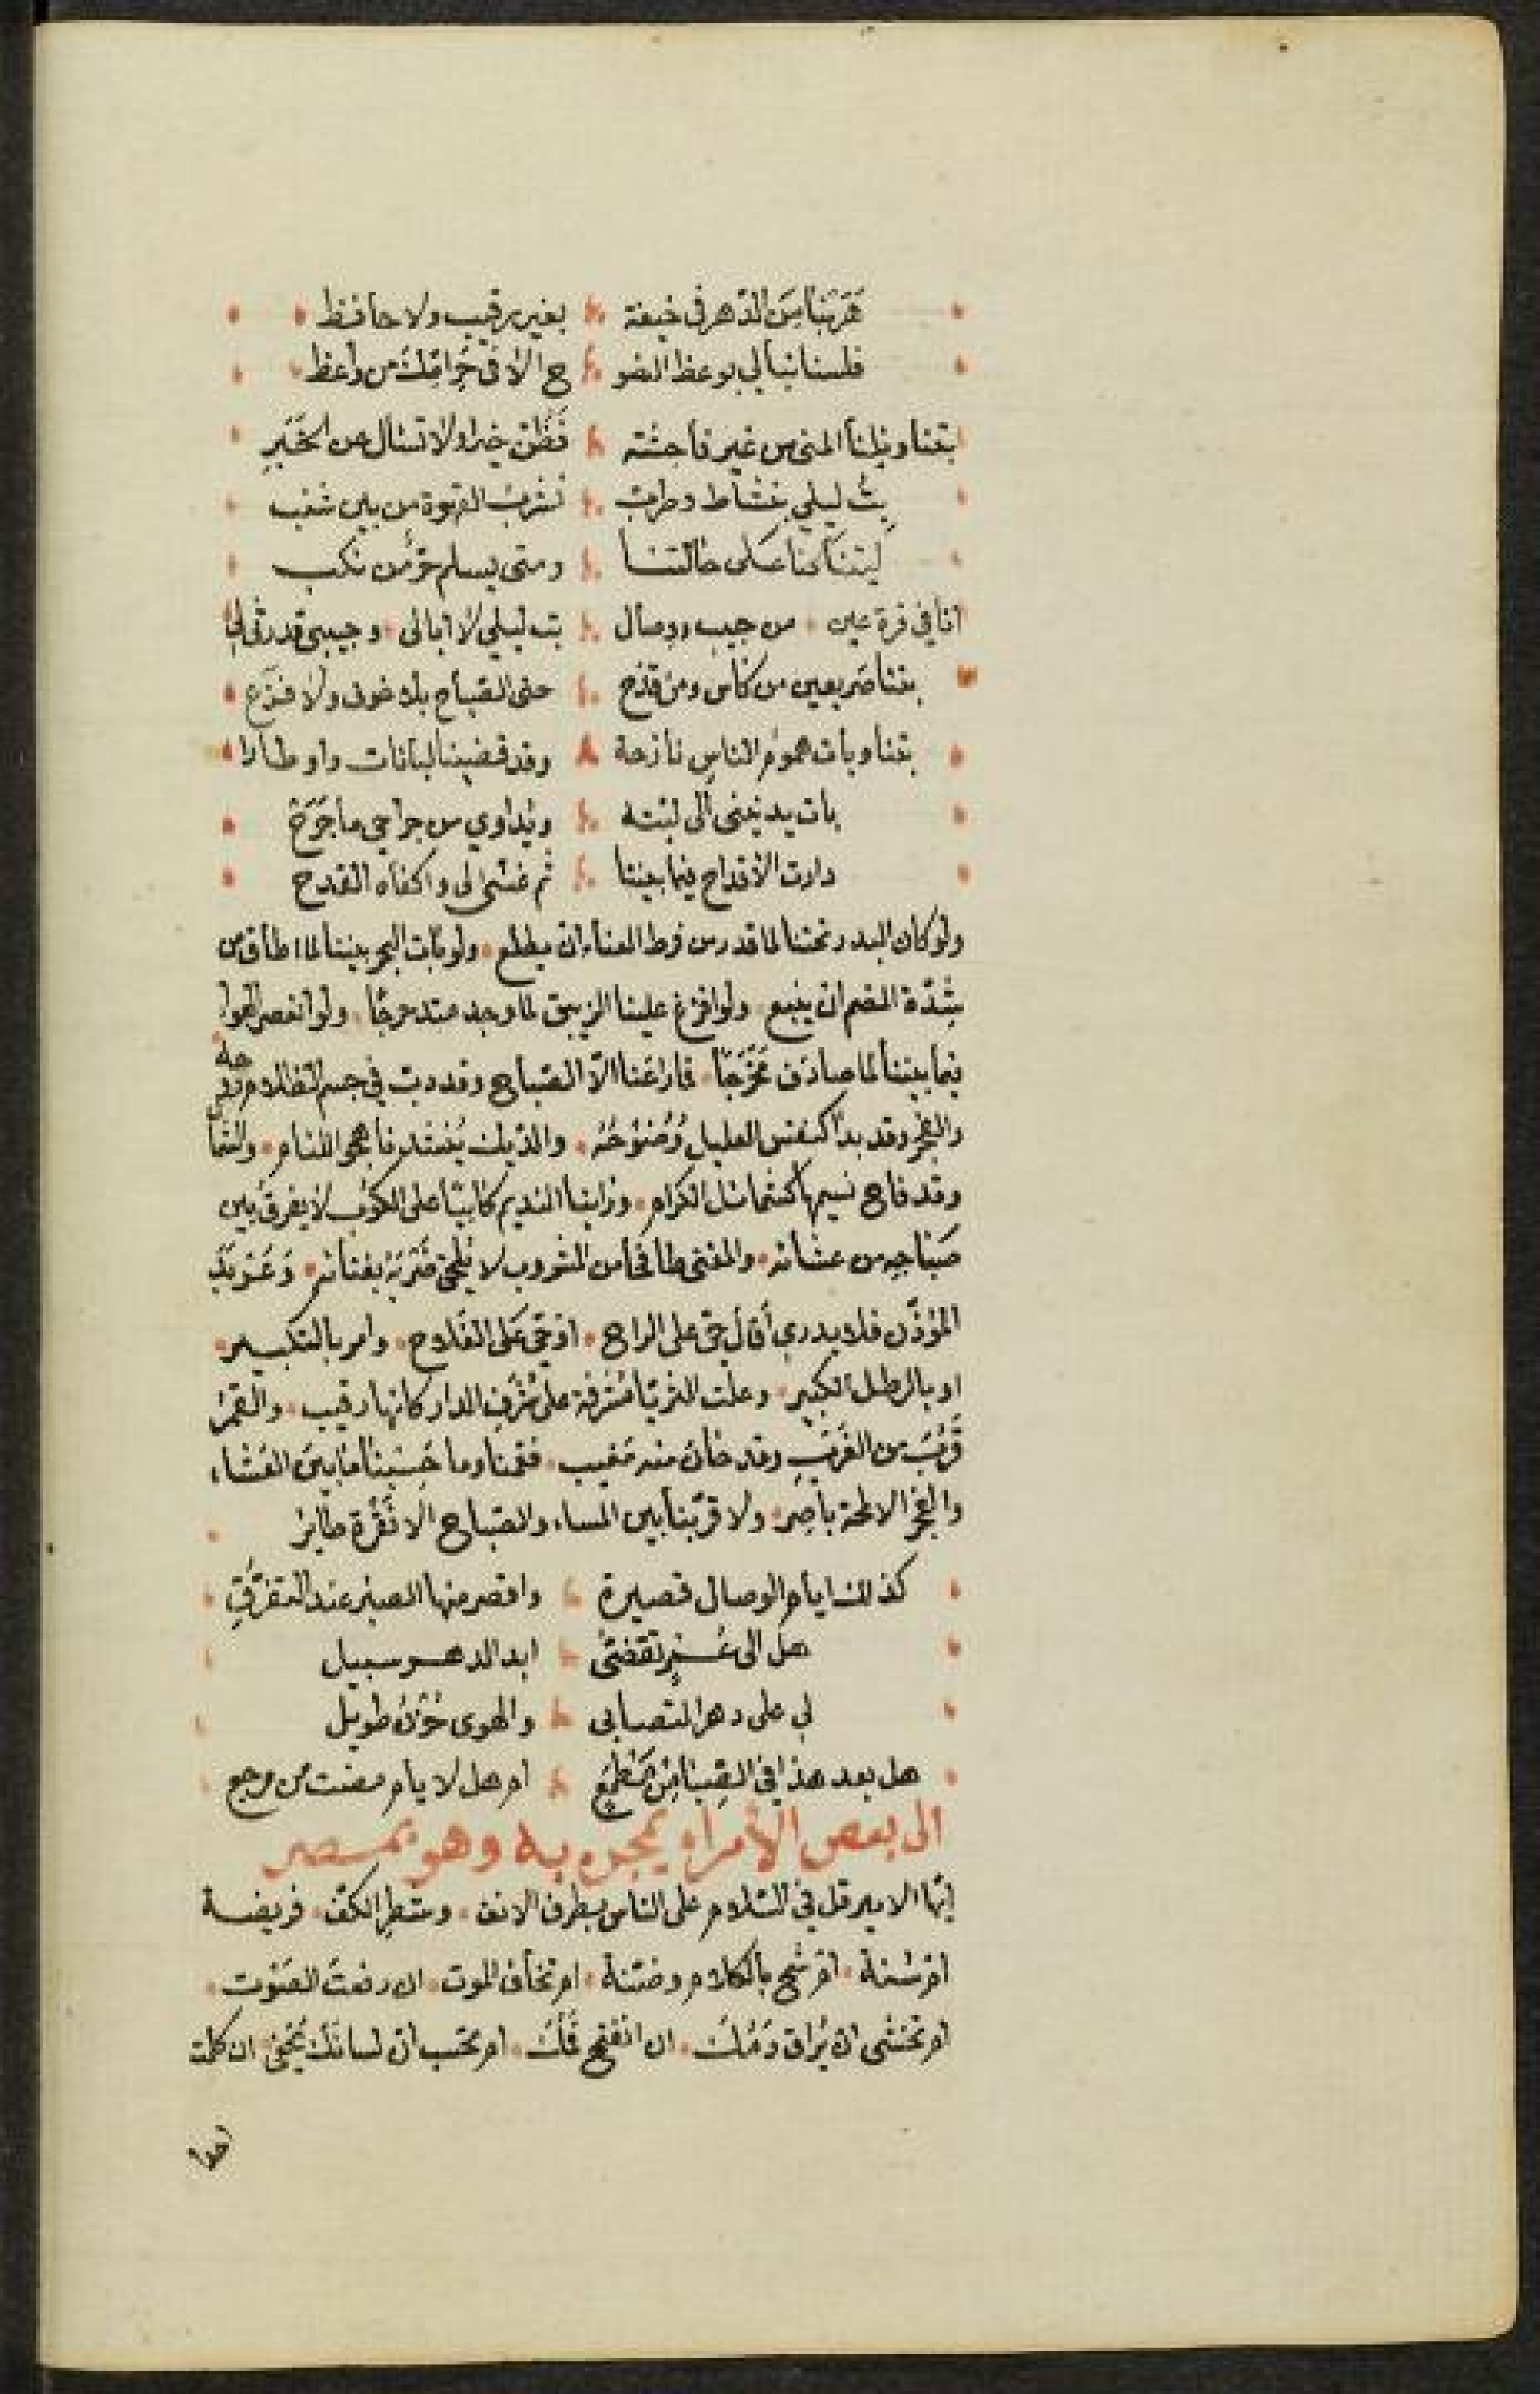 هَرَبْنا مِنَ الدّهر في خيفة بغير رقيب ولا حافظ
فلسنا نبالي بوعظ النصو ح الا في حرامك من واعظ
بتنا ونلنا المنى من غير فاحشة فظن خيرا ولا تسأل عن الخبر
بتُّ ليلي بنشاط وطرب نشرب القهوة من بين شنب
ليتنا كنا على حالتنا ومتى يسلم حر من نكب
انا في قرة عين من حبيب ووصال بت ليلي لا ابالي وحبيبي قد رثى لي
بتنا صريعين من كأس ومن قدح حتى الصباح بلا خوف ولا فزع
بتنا وبات هموم الناس نازحة وقد قضينا لبانات واوطارا
بات يدنيني الى لبته ويداوي من جراحي ما جرح
دارت الاقداح فيما بيننا ثم غشى لي واكفاه القدح
ولو كان البدر تحتنا لما قدر من فرط العناء ان يطلع ولو بات البحر بيننا لما اطاق من
شدّة الضم ان ينبع ولو افرغ علينا الزيبق لما وجد عنا مدرجًا ولو انعصر الهوا
فيما بيننا لما صادف مَخْرَجًا فما راعنا الّا الصباح وقد دبت في جسم الظلام روحه
والفجر وقد بدا كنفس العليل وضوحه والديك ينشد ناهجو المنام والنما
وقد فاح نسيمها كشمائل الكرام وراينا النديم كابيًا على الكوب لا يفرق بين
صباحه من عشائه والمغني طافحًا من المشروب لا يلحق ضربه بغنائه وعربد
المؤذن فلا يدري أقال حيّ على الراح او حيّ على الفلاح وامر بالتكبير
او بالرطل الكبير وعلت الثريا مشرفة على شرف الدار كانها رقيب والقمر
قَرُبَ من الغرب وقد حان منه مغيب فقمنا وما حسبنا ما بين العشاء
والفجر الا لمحة باصر ولا قربنا بين المساء والصباح الا نقرة طاير
كذلك ايام الوصال قصيرة واقصر منها الصبر عند التفرّق
هل الى عُمْرٍ تقضّى ابد الدهر سبيل
لي على دهر التصابي والهوى حزن طويل
هل بعد هذا في الصبا من مطمع ام هل لايام مضت من مرجع
الى بعض الأمراء يمجن به وهو بمصر
ايها الامير قل في السلام على الناس بطرف الانف وشطر الكف فريضة
ام سُنة ام شح بالكلام وضنة ام تخاف الموت ان رفعت الصوت
ام تخشى ان يراق دَمُكَ ان انفتح فَمُك ام تحسب ان لسانك يخفى ان كلمت